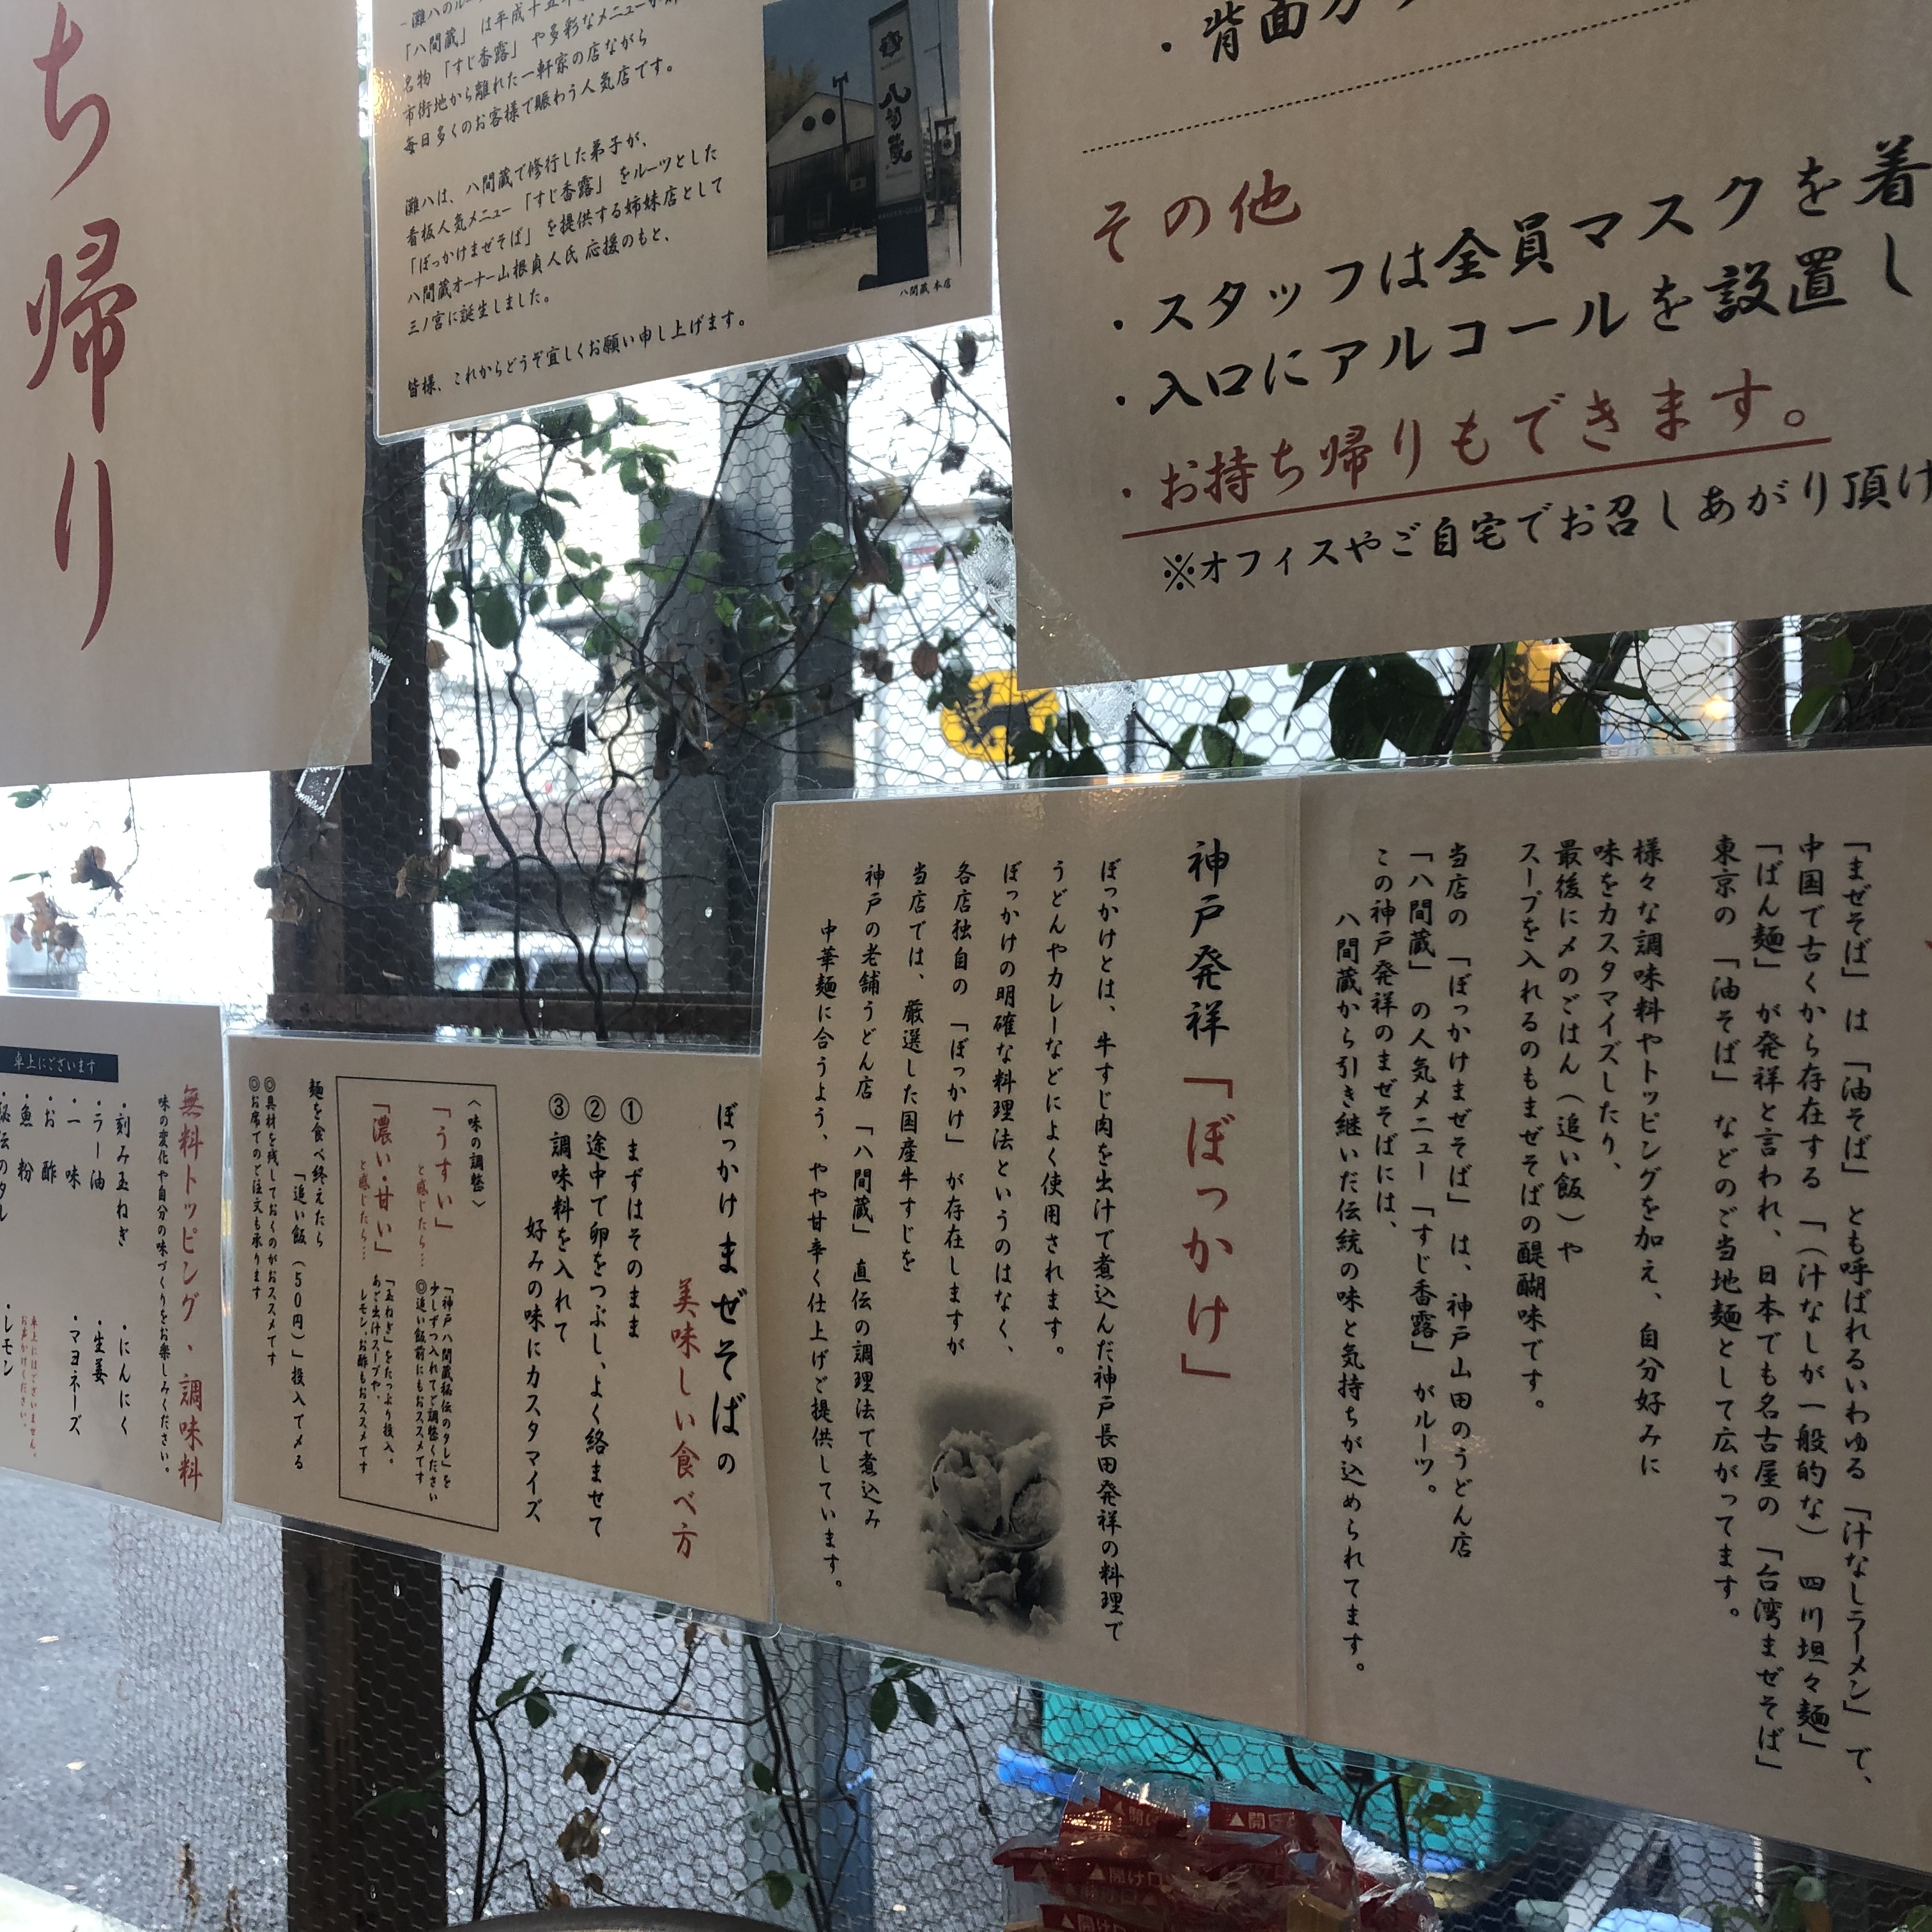 ち帰り
「八間蔵」は平成十五年
名物「すじ香露」や多彩なメニューが
市街地から離れた一軒家の店ながら
毎日多くのお客様で賑わう人気店です。
灘八は、八間蔵で修行した弟子が、
看板人気メニュー「すじ香露」をルーツとした
「ぼっかけまぜそば」を提供する姉妹店として
八間蔵オーナー山根貞人氏 応援のもと、
三ノ宮に誕生しました。
皆様、これからどうぞ宜しくお願い申し上げます。
八間蔵
八間蔵 本店
・背面カ
その他
・スタッフは全員マスクを着
・入口にアルコールを設置し
・お持ち帰りもできます。
※オフィスやご自宅でお召しあがり頂け
「まぜそば」は「油そば」とも呼ばれるいわゆる「汁なしラーメン」で、
中国で古くから存在する「(汁なしが一般的な)四川坦々麺」
「ばん麺」が発祥と言われ、日本でも名古屋の「台湾まぜそば」
東京の「油そば」などのご当地麺として広がってます。
様々な調味料やトッピングを加え、自分好みに
味をカスタマイズしたり、
最後に〆のごはん(追い飯)や
スープを入れるのもまぜそばの醍醐味です。
当店の「ぼっかけまぜそば」は、神戸山田のうどん店
「八間蔵」の人気メニュー「すじ香露」がルーツ。
この神戸発祥のまぜそばには、
八間蔵から引き継いだ伝統の味と気持ちが込められてます。
神戸発祥「ぼっかけ」
ぼっかけとは、牛すじ肉を出汁で煮込んだ神戸長田発祥の料理で
うどんやカレーなどによく使用されます。
ぼっかけの明確な料理法というのはなく、
各店独自の「ぼっかけ」が存在しますが
当店では、厳選した国産牛すじを
神戸の老舗うどん店「八間蔵」直伝の調理法で煮込み
中華麺に合うよう、やや甘辛く仕上げご提供しています。
ぼっかけまぜそばの
美味しい食べ方
① まずはそのまま
② 途中で卵をつぶし、よく絡ませて
③ 調味料を入れて
好みの味にカスタマイズ
〈味の調整〉
「うすい」と感じたら…
「神戸八間蔵秘伝のタレ」を
少しずつ入れてご調整ください
◎追い飯前にもおススメです
「濃い・甘い」と感じたら…
「玉ねぎ」をたっぷり投入。
あご出汁スープや、
レモン、お酢もおススメです
麺を食べ終えたら
「追い飯(50円)」投入で〆る
◎具材を残しておくのがおススメです
◎お席でのご注文も承ります
無料トッピング・調味料
味の変化や自分の味づくりをお楽しみください。
卓上にございます
・刻み玉ねぎ
・ラー油
・一味
・お酢
・魚粉
・にんにく
・生姜
・マヨネーズ
卓上にはございません。
お声かけください。
・レモン
▲開け口
▲開け口
▲開け口
▲開け口